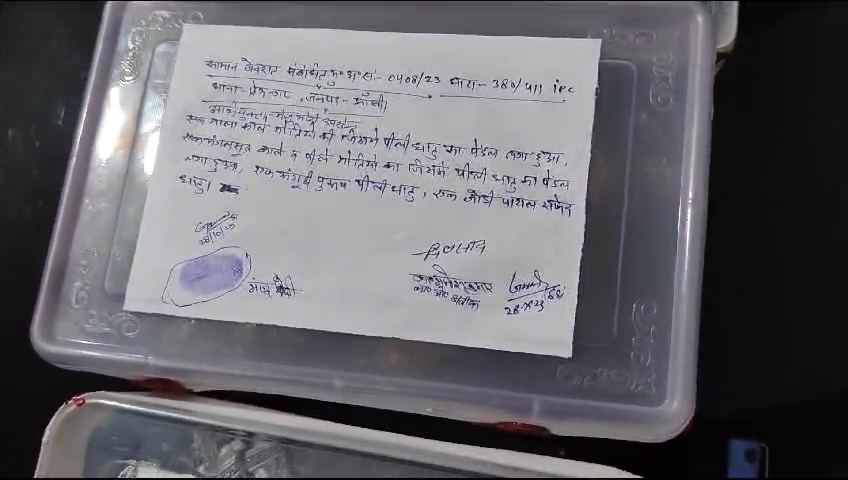 सामान बैनरात संबंधित मु० अ० सं:- 0408/23 धारा- 380/411 IPC
थाना- प्रेमनगर, जनपद- झाँसी
एक माला काले मोतियों की जिसमे पीली धातु का पेंडल लगा हुआ,
एक मंगलसूत्र काले व पीले मोतियों का जिसमे पीली धातु का पेंडल
लगा हुआ, एक अंगूठी पुरुष पीली धातु, एक जोडी पायल सफेद
धातु।
28/10/23
मंजू देवी
28.X.23 SI